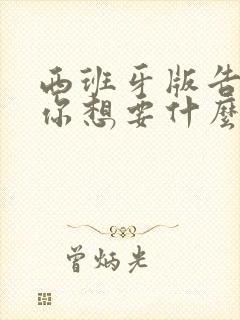 西班牙版告
你想要什麼
曾炳光